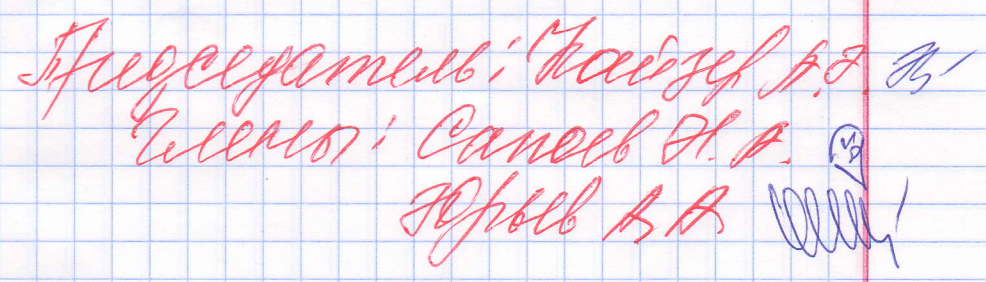 Председатель: Кайзер А.Э.
Члены: Сапоев Н. А.
Юрьев А А